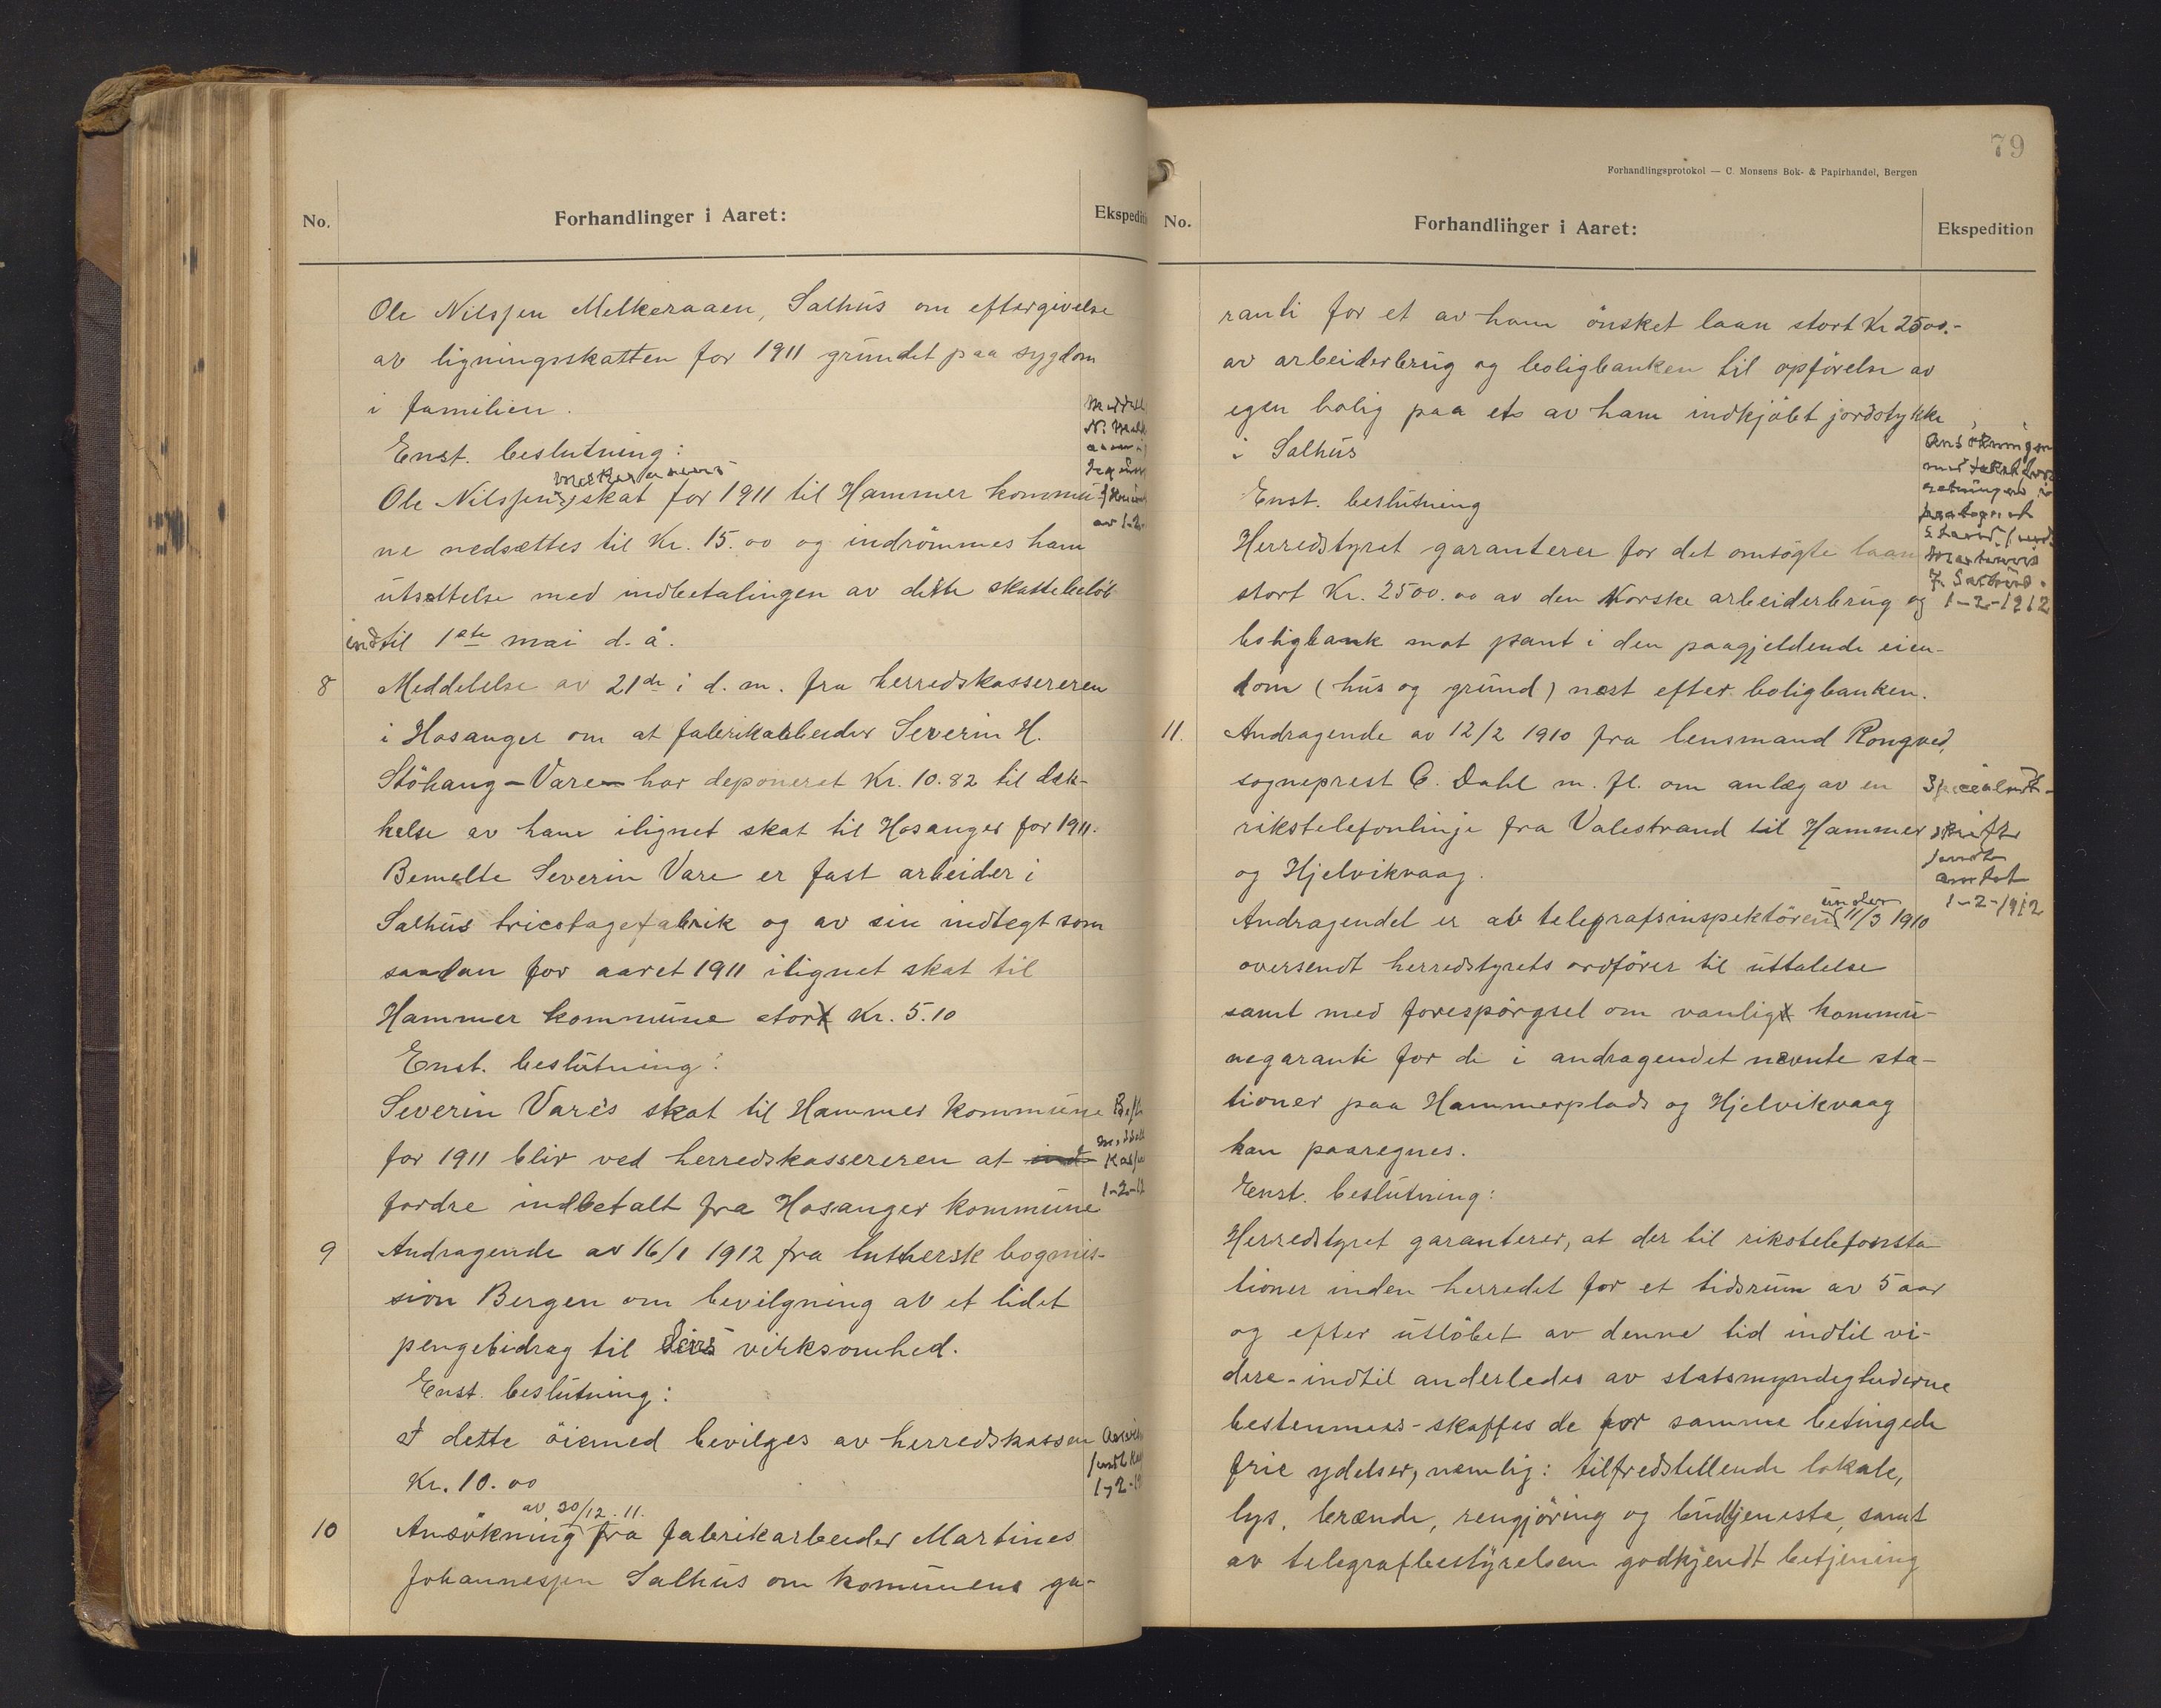 No.
Forhandlinger i Aaret:
Ole Nilssen Melkeraaen, Salhus om eftergivelse
av ligningsskatten for 1911 grundet paa sygdom
i familien.
Enst. beslutning:
Melkeraaens
Ole Nilssens skat for 1911 til Hammer kommu-
ne nedsættes til Kr. 15.00 og indrömmes ham
utsættelse med indbetalingen av dette skattebelöb
indtil 1ste mai d. å.
av 1-2-
8 Meddelelse av 21de i d. m. fra herredskassereren
i Hosanger om at fabrikarbeider Severin H.
Stöhaug-Vare har deponeret Kr. 10.82 til dæk-
kelse av ham ilignet skat til Hosanger for 1911.
Bemelte Severin Vare er fast arbeider i
Salhus tricotagefabrik og av sin indtegt som
saadan for aaret 1911 ilignet skat til
Hammer kommune stor Kr. 5.10
Enst. beslutning:
Severin Vares skat til Hammer kommune
for 1911 blir ved herredskassereren at ind
fordre indbetalt fra Hosanger kommune
1-2-12
9 Andragende av 16/1 1912 fra luthersk bogmis-
sion Bergen om bevilgning av et lidet
pengebidrag til virksomhed.
Enst. beslutning:
I dette öiemed bevilges av herredskassen
Kr. 10.00
1-2-
av 30/12.11.
10 Ansökning fra fabrikarbeider Martines
Johannessen Salhus om komunens ga-
79
Forhandlingsprotokol — C. Monsens Bok- & Papirhandel, Bergen
No.
Forhandlinger i Aaret:
Ekspedition
ranti for et av ham önsket laan stort Kr 2500.-
av arbeiderbrug og boligbanken til opförelse av
egen bolig paa et av ham indkjöbt jordstykke
i Salhus
Enst. beslutning
Herredstyret garanterer for det omsögte laan
stort Kr. 2500.00 av den Norske arbeiderbrug og
boligbank mot pant i den paagjeldende eien-
dom (hus og grund) næst efter boligbanken.
Ansökningen
med
Salhus.
1-2-1912
11. Andragende av 12/2 1910 fra lensmand Rongved,
sogneprest C. Dahl m. fl. om anlæg av en
rikstelefonlinje fra Valestrand til Hammer
og Hjelvikvaag.
Specialut-
skrift
sendt
amtet
1-2-1912
under
Andragendet er av telegrafsinspektören 11/3 1910
oversendt herredstyrets ordförer til uttalelse
samt med forespörgsel om vanlig kommu-
negaranti for de i andragendet nævnte sta-
tioner paa Hammerplads og Hjelvikvaag
kan paaregnes.
Enst. beslutning:
Herredstyret garanterer, at der til rikstelefonsta
tioner inden herredet for et tidsrum av 5 aar
og efter utlöbet av denne tid indtil vi-
dere - indtil anderledes av statsmyndigheterne
bestemmes - skaffes de for samme betingede
frie ydelser, nemlig: tilfredstellende lokale,
lys, brænde, rengjöring og budtjeneste, samt
av telegrafbestyrelsen godkjendt betjening